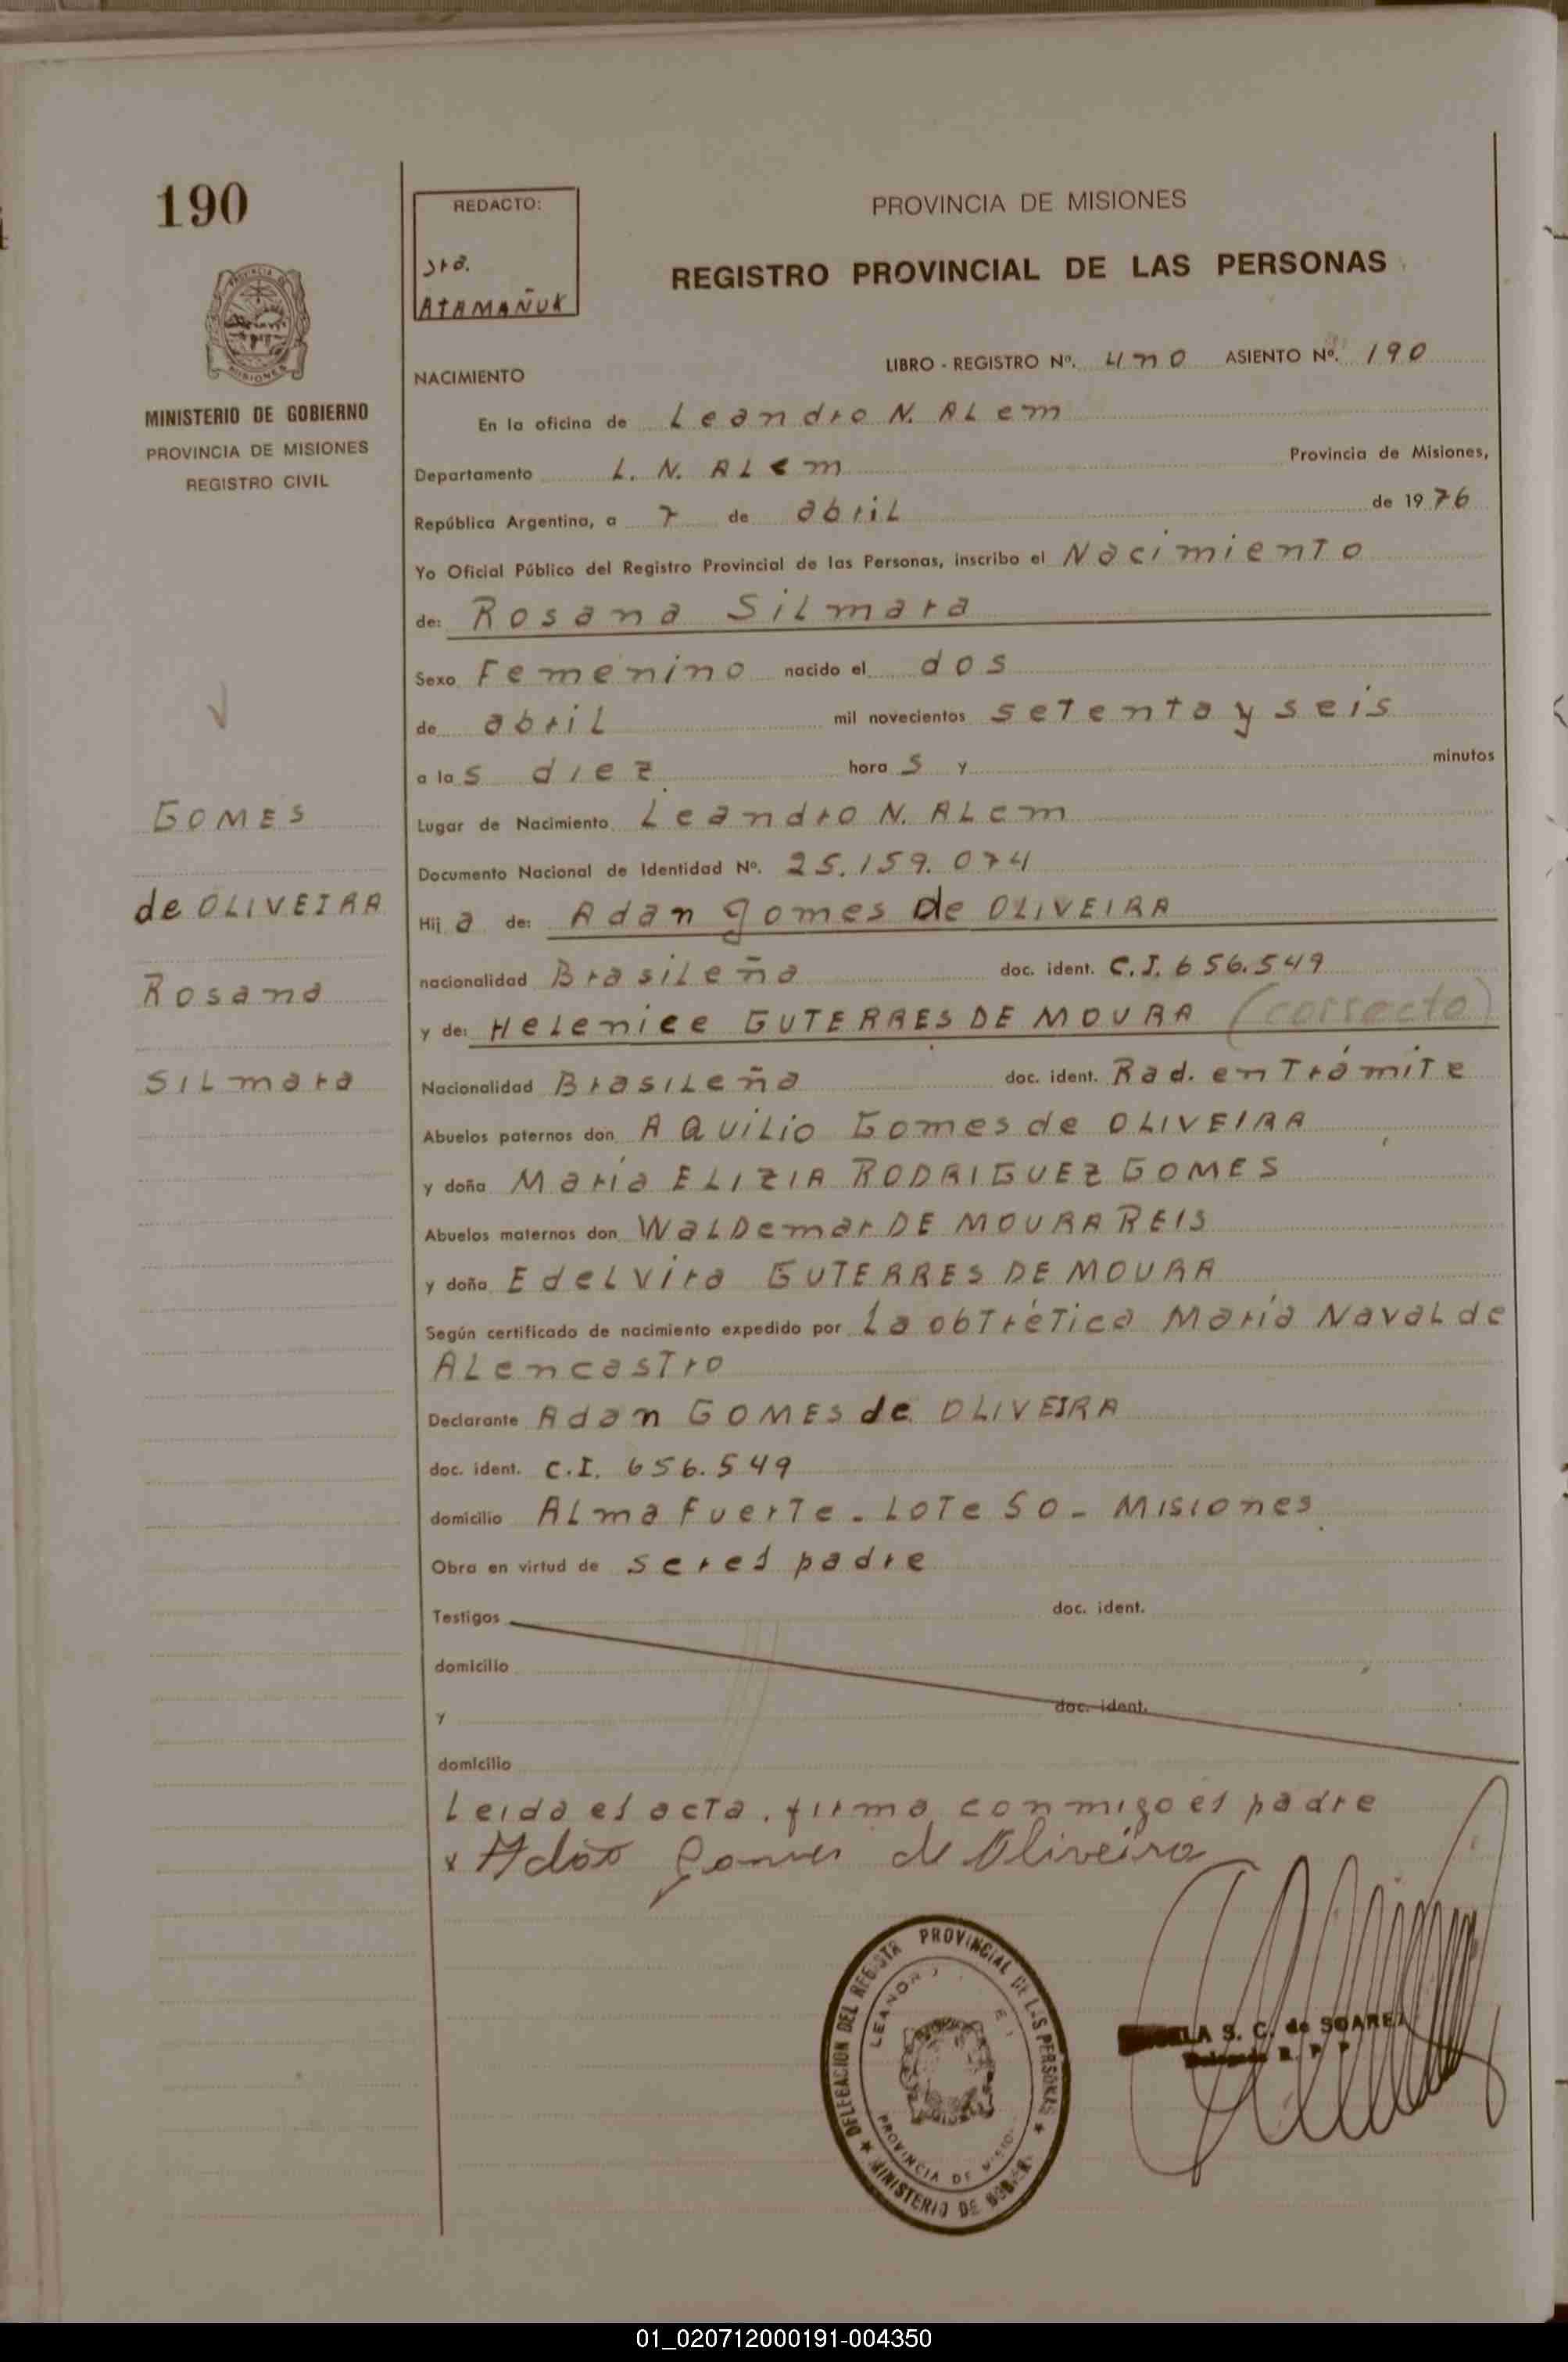 190
REDACTO:
Sra.
ATAMAÑUK
PROVINCIA DE MISIONES
REGISTRO PROVINCIAL DE LAS PERSONAS
MINISTERIO DE GOBIERNO
PROVINCIA DE MISIONES
REGISTRO CIVIL
NACIMIENTO
LIBRO - REGISTRO Nº. uno ASIENTO Nº. 190
En la oficina de Leandro N. ALem
Departamento L. N. ALem Provincia de Misiones,
República Argentina, a 7 de abril de 1976
Yo Oficial Público del Registro Provincial de las Personas, inscribo el Nacimiento
de: Rosana Silmara
Sexo Femenino nacido el dos
de abril mil novecientos setenta y seis
a las diez horas y minutos
Lugar de Nacimiento Leandro N. ALem
Documento Nacional de Identidad Nº. 25.159.074
Hija de: Adan gomes de OLIVEIRA
nacionalidad Brasileña doc. ident. C.I. 656.549
y de: Helenice GUTERRES DE MOURA (correcto)
Nacionalidad Brasileña doc. ident. Rad. en Trámite
Abuelos paternos don AQuilio Gomes de OLIVEIRA
y doña María ELIZIA RODRIGUEZ GOMES
Abuelos maternos don WaLDemar DE MOURA REIS
y doña Edelvira GUTERRES DE MOURA
Según certificado de nacimiento expedido por La obtrética María Naval de
ALencastro
Declarante Adan GOMES de OLIVEIRA
doc. ident. C.I. 656.549
domicilio ALmafuerte - Lote 50 - Misiones
Obra en virtud de ser el padre
Testigos doc. ident.
domicilio
y doc. ident.
domicilio
Leida el acta, firma conmigo el padre
x Adão Gomes de Oliveira
GOMES
de OLIVEIRA
Rosana
SILmara
DELEGACION DEL REGISTR PROVINCIAL DE LAS PERSONAS
MINISTERIO DE
PROVINCIA DE
S. C. de SOAREZ
01_020712000191-004350